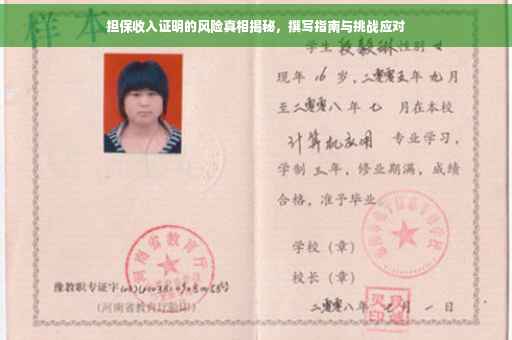 担保收入证明的风险真相揭秘，撰写指南与挑战应对
样本
学生段毅琳性别女
现年16岁，二零零五年九月
至二零零八年七月在本校
计算机应用 专业学习，
学制三年，修业期满，成绩
合格，准予毕业。
学校（章）
校长（章）
二零零八年七月一日
河南省教育厅
豫教职专证字
（河南省教育厅验印）